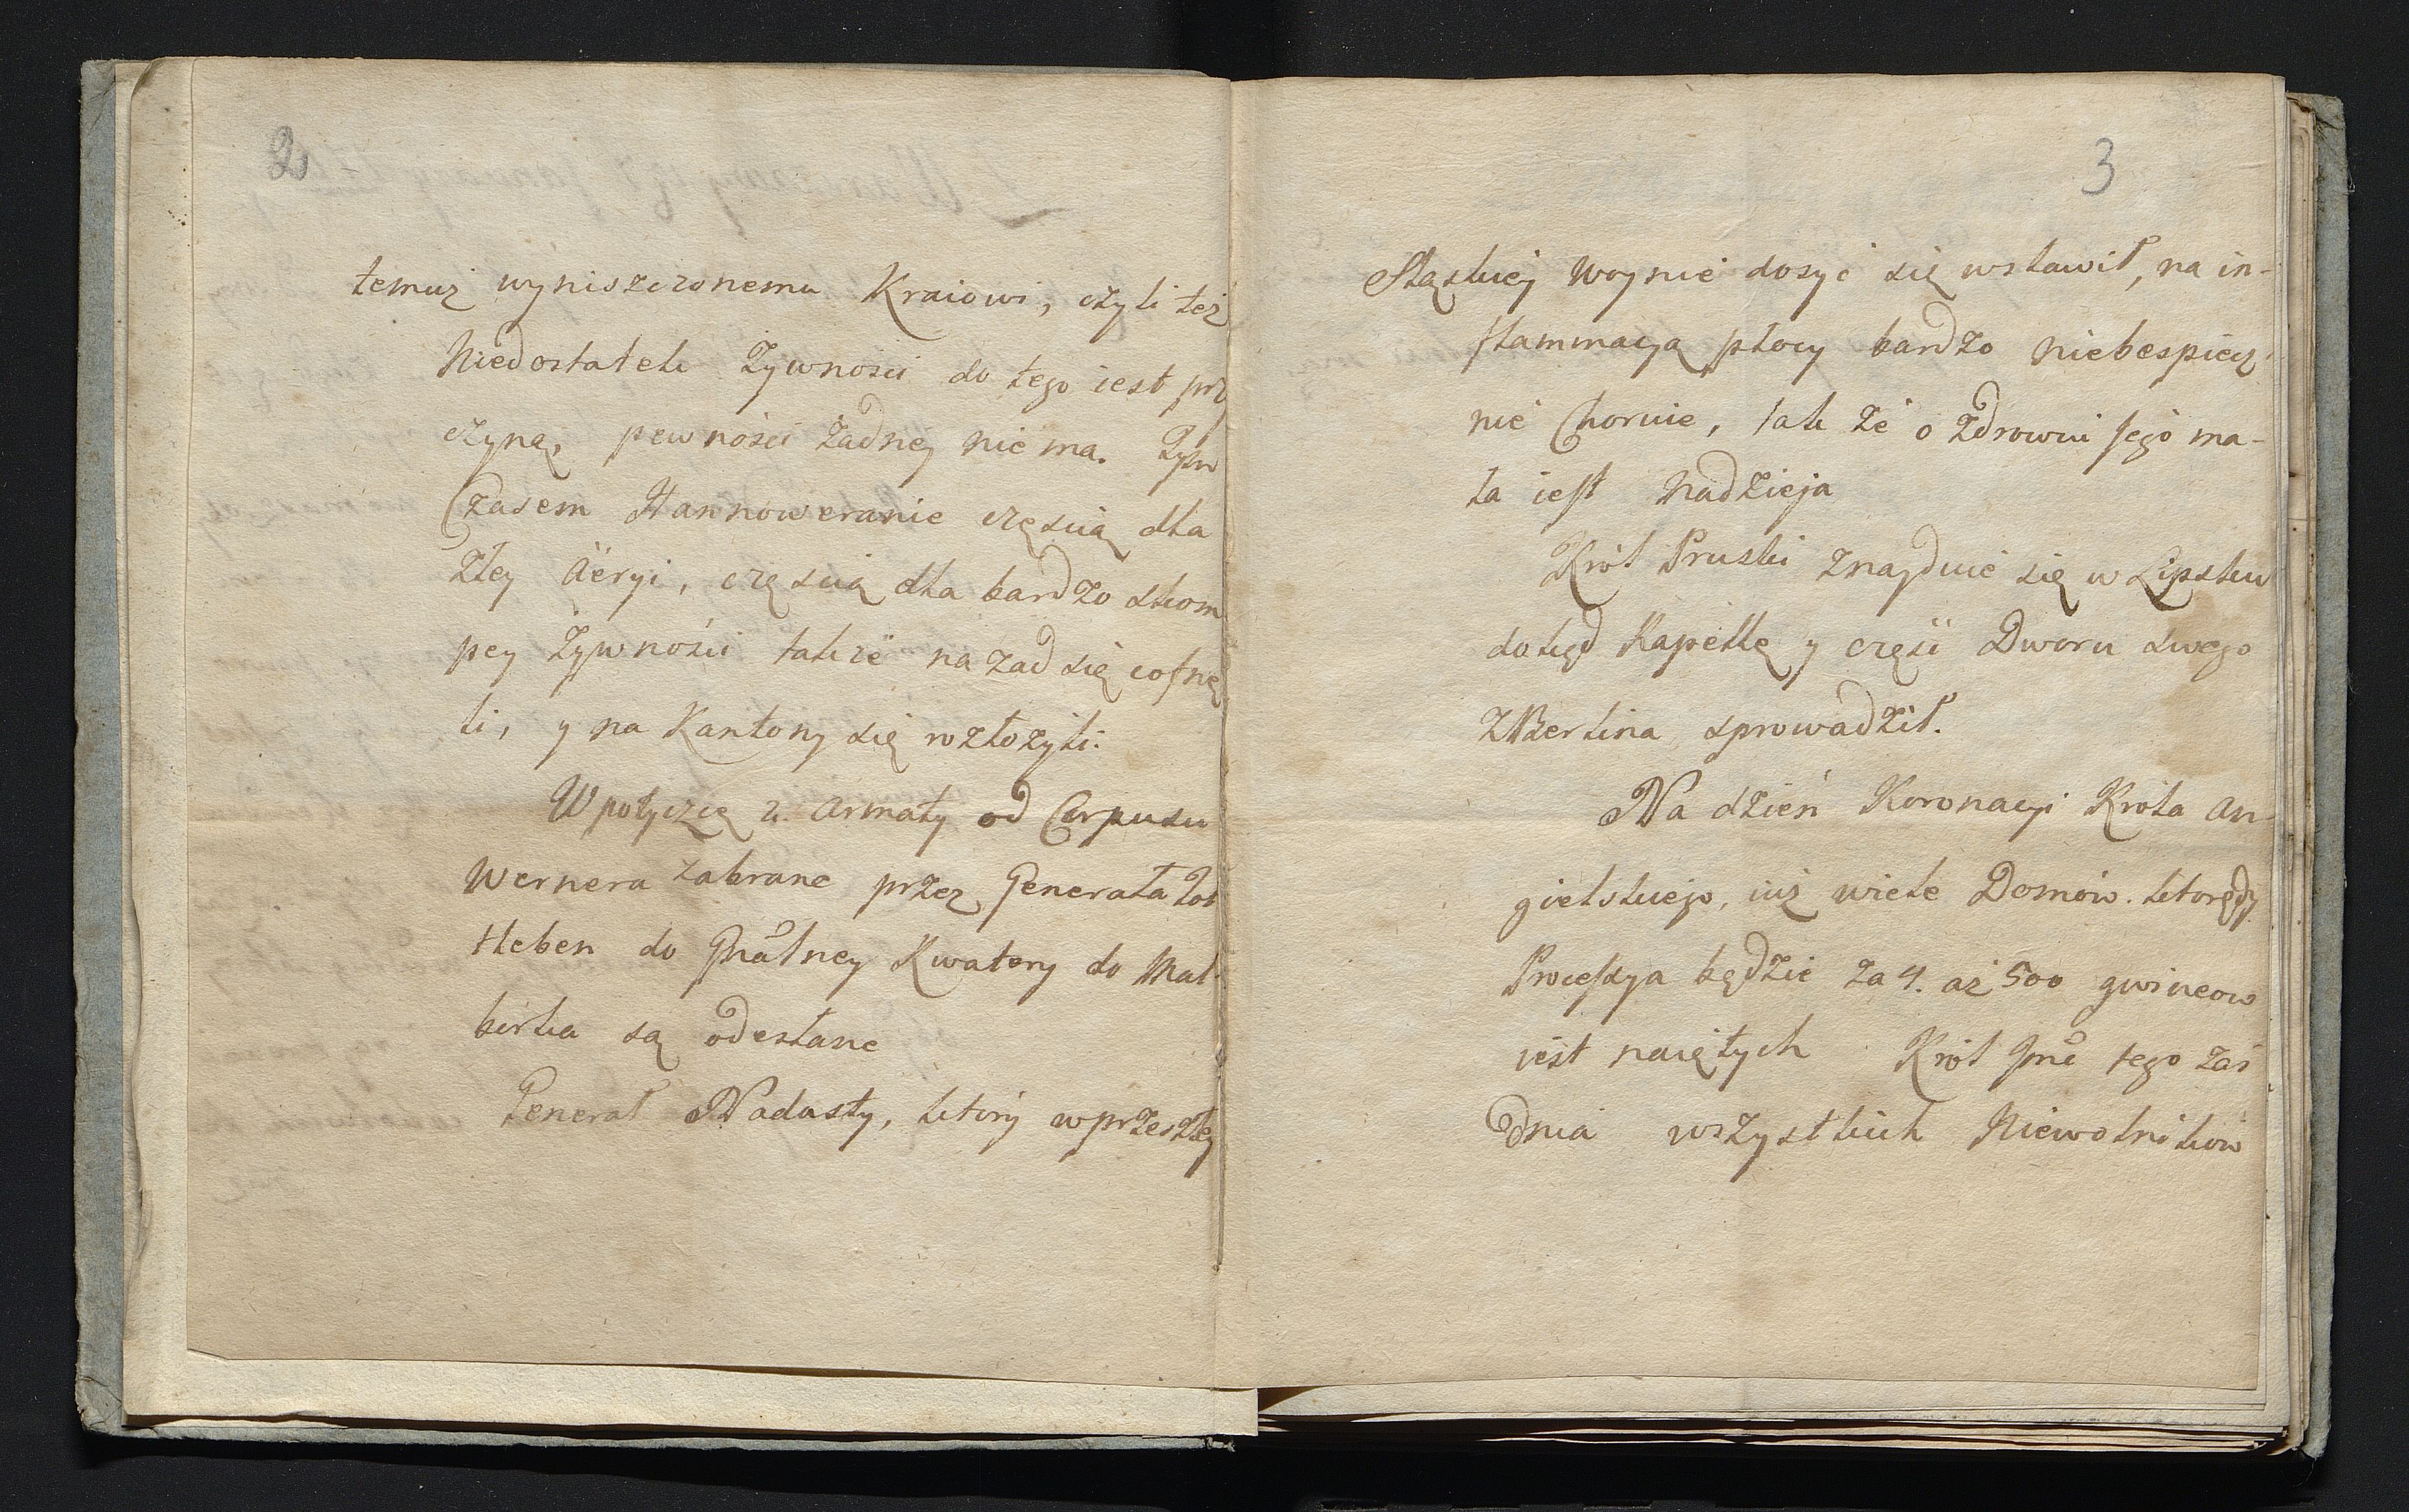 2
temuż wyniszczonemu Kraiowi, czyli też
Niedostatek Żywnosci do tego iest przy
czyną, pewnósci żadney nie ma. Tym
Czasem Hannoweranie częscią dla
Złey Aëryi, częscią dla bardzo skom
pey Żywnósci takze na zad się cofnę
li, y na Kantony się rozłożyli.
W potyczcę 2. Armaty od Corpusu
Wernera zabrane przez Generała Tot
tleben do Gnałney Kwatery do Mal-
borka są odesłane
Generał Nadasty, ktory w przeszłey
3
Sląskiey Woynie dosyć się wsławił, na in-
flammacyą płocy bardzo niebespiecz-
nie Choruie, tak że o Zdrowiu jego ma-
ła iest nadzieja
Król Pruski znayduie się w Lipsku
dokąd Kapellę y częsć Dworu swego
z Berlina sprowadził.
Na dzień Koronacyi Króla An-
gielskiego, iuż wiele Domów. ktorędy
Processya będzie za 4. aż 500 gwineow
iest naiętych Król Jmć tego zaś
Dnia wszystkich Niewolnikow